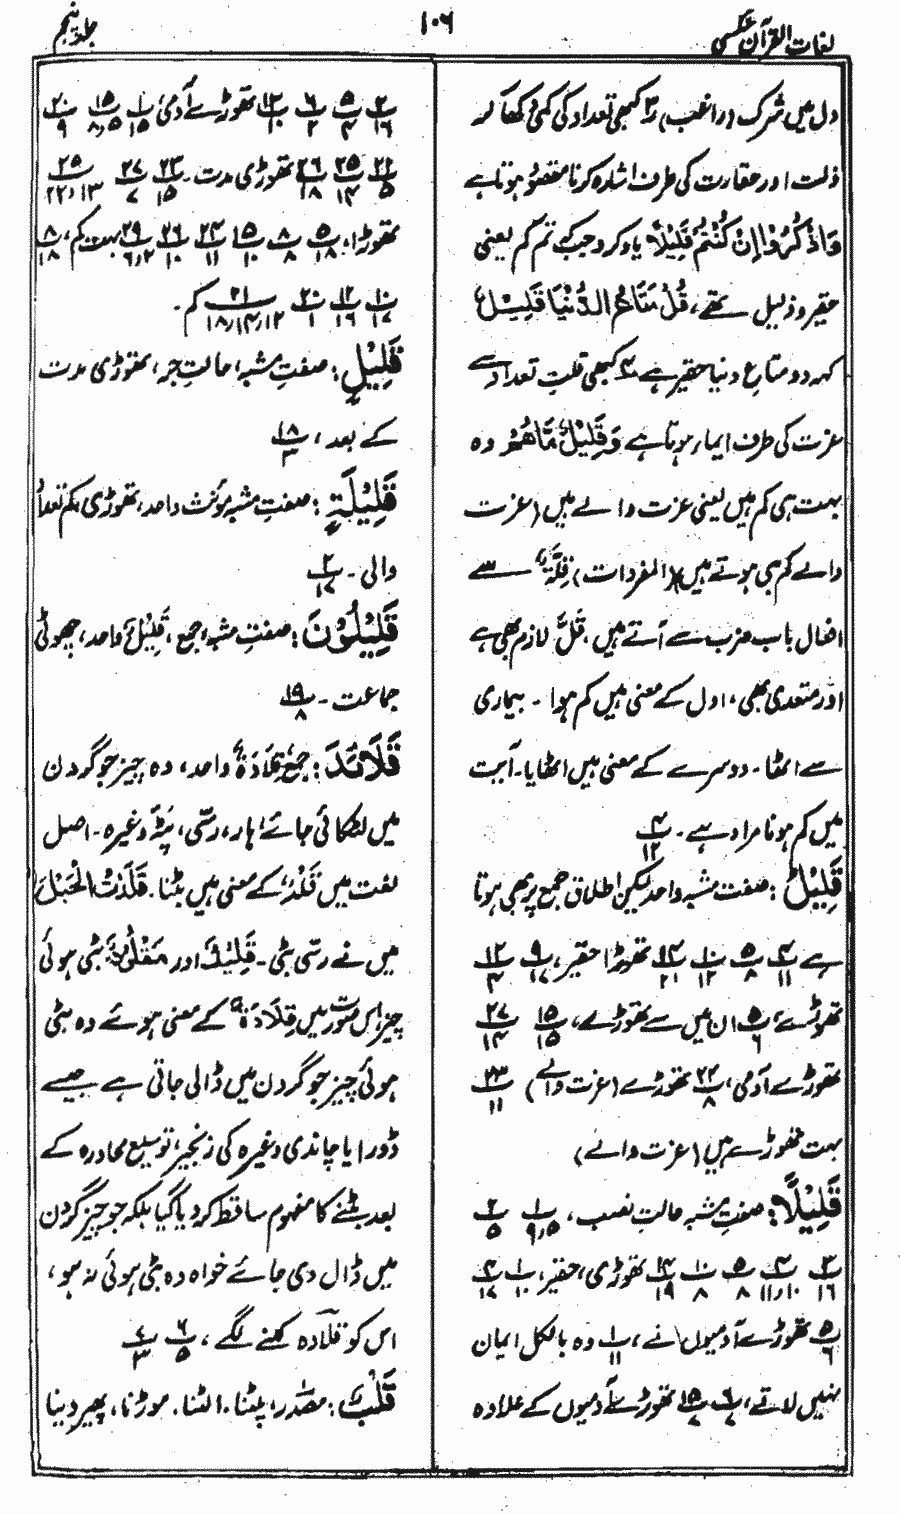 لغات القرآن عکسی
۱۰۶
جلد پنجم
دل میں شرک (راغب) ۳ کبھی تعداد کی کمی دکھا کر
ذلت اور حقارت کی طرف اشارہ کرنا مقصود ہوتا ہے
وَاذْکُرُوْا اِذْ کُنْتُمْ قَلِیْلًا یاد کرو جب کہ تم کم یعنی
حقیر و ذلیل تھے، قُلْ مَتَاعُ الدُّنْیَا قَلِیْلٌ
کہہ دو متاع دنیا حقیر ہے ۴ کبھی قلت تعداد سے
عزت کی طرف ایماء ہوتا ہے وَقَلِیْلٌ مَّا ھُمْ وہ
بہت ہی کم ہیں یعنی عزت والے ہیں (عزت
والے کم ہی ہوتے ہیں) (المفردات) قِلَّةٌ سے
افعال باب ضرب سے آتے ہیں، قَلَّ لازم بھی ہے
اور متعدی بھی، اول کے معنی ہیں کم ہوا۔ بیماری
سے اٹھا۔ دوسرے کے معنی ہیں اٹھایا۔ آیت
میں کم ہونا مراد ہے۔ ۴/۱۲
قَلِیْلٌ: صفت مشبہ واحد لیکن اطلاق جمع پر بھی ہوتا
ہے ۴/۱۱ ۵/۸ ۱۰/۱۲ ۱۴/۲۱ تھوڑا حقیر، ۹/۱۷ ۱۲/۴
تھوڑے، ۵/۶ ان میں سے تھوڑے، ۱۵/۱۵ ۲۷/۱۴
تھوڑے آدمی، ۲۲/۸ تھوڑے (عزت والے) ۲۳/۱۱
بہت تھوڑے ہیں (عزت والے)
قَلِیْلًا: صفتِ مشبہ حالتِ نصب، ۱/۹،۵ ۲/۵
۳/۱۶ ۴/۱۱،۱۰ ۵/۸ ۱۰/۸ ۱۴/۱۹ تھوڑی، حقیر، ۱/۱۰ ۴/۱۷
۵/۶ تھوڑے آدمیوں نے، ۱/۱۱ وہ بالکل ایمان
نہیں لاتے، ۶/۷ ۱۵/۷ تھوڑے آدمیوں کے علاوہ
۲/۱۶ ۵/۴ ۶/۲ ۱۲/۱۰ تھوڑے سے آدمی، ۱/۱۵ ۱۵/۸،۵ ۲۰/۹
۲۱/۵ ۲۵/۱۴ ۲۶/۱۸ تھوڑی مدت۔ ۲۳/۱۵ ۲۷/۷ ۲۵/۲۲،۱۳
تھوڑا، ۵/۱۸ ۸/۸ ۱۵/۱۰ ۲۴/۱۱ ۲۶/۱۰ ۲۹/۶،۲ بہت کم، ۸/۱۸
۱۰/۱۷ ۱۲/۱۶ ۲۰/۱ ۲۱/۱۸،۱۴،۱۲ کم۔
قَلِیْلٍ: صفتِ مشبہ، حالتِ جر، تھوڑی مدت
کے بعد، ۱۸/۳
قَلِیْلَةٍ: صفتِ مشبہ مؤنث واحد، تھوڑی، کم تعداد
والی۔ ۲/۱۷
قَلِیْلُوْنَ: صفتِ مشبہ جمع، قَلِیْلٌ واحد، چھوٹی
جماعت۔ ۱۹/۸
قَلَائِدَ: جمع قِلَادَةٌ واحد، وہ چیز جو گردن
میں لٹکائی جائے، ہار، رسّی، پٹہ وغیرہ۔ اصل
لغت میں قَلْدٌ کے معنی ہیں بٹنا۔ قَلَدْتُ الْحَبْلَ
میں نے رسّی بٹی۔ قَلِیْدٌ اور مَقْلُوْدٌ بٹی ہوئی
چیز، اس صورت میں قِلَادَةٌ کے معنی ہوئے وہ بٹی
ہوئی چیز جو گردن میں ڈالی جاتی ہے جیسے
ڈورا یا چاندی وغیرہ کی زنجیر، توسیع محاورہ کے
بعد بٹنے کا مفہوم ساقط کر دیا گیا بلکہ جو چیز گردن
میں ڈال دی جائے خواہ وہ بٹی ہوئی نہ ہو،
اس کو قلادہ کہنے لگے، ۶/۵ ۷/۳
قَلْبَ: مصدر، پلٹنا۔ الٹنا۔ موڑنا، پھیر دینا